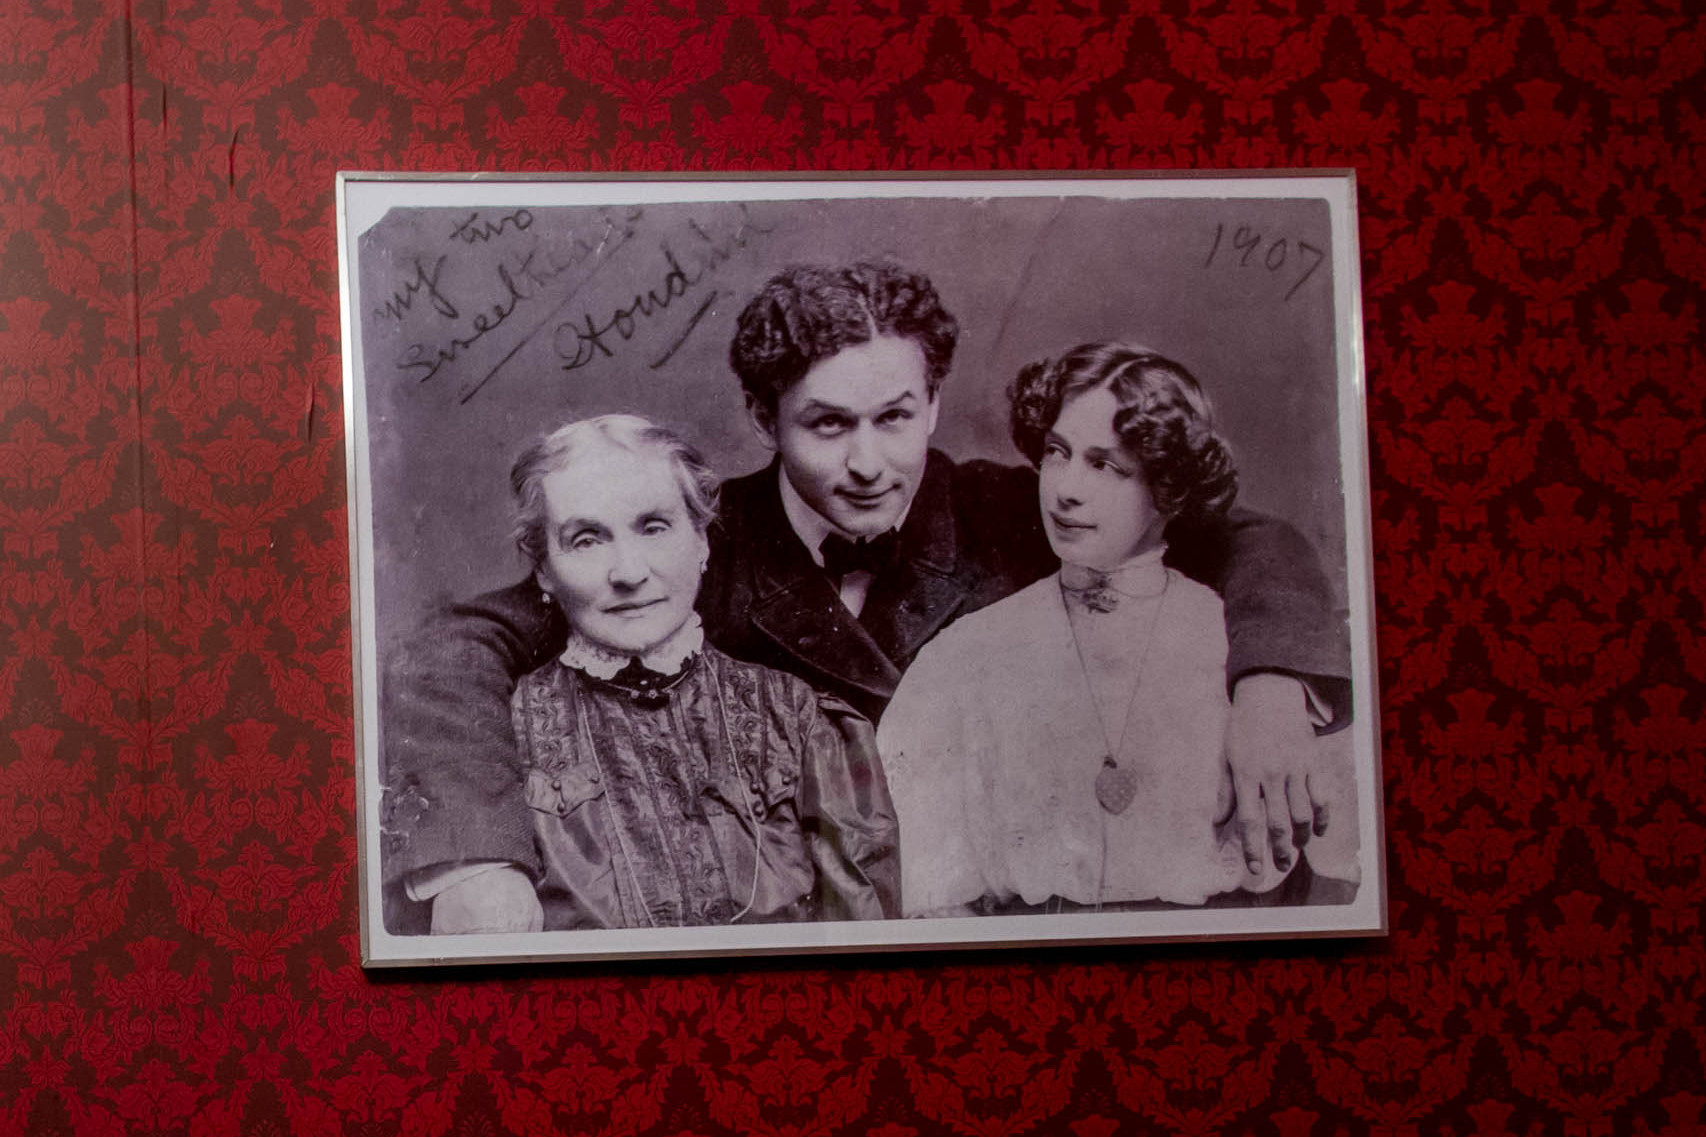 my two
Sweethearts
Houdini
1907